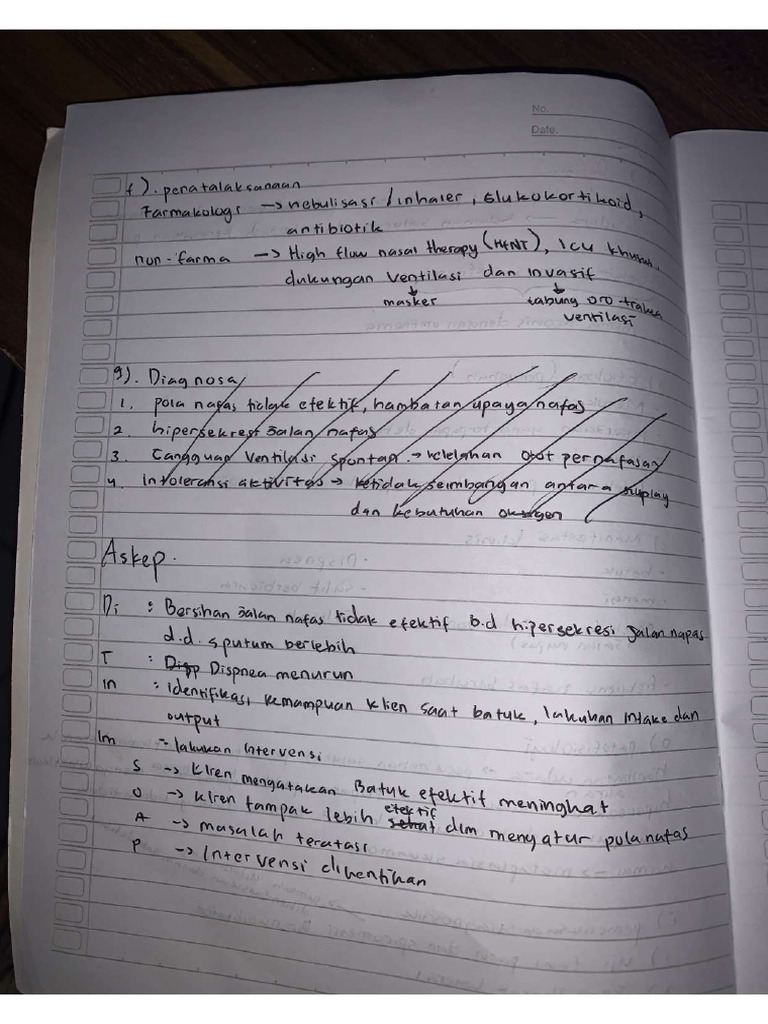 No.
Date.
f). peratalaksanaan
Farmakologi → nebulisasi / inhaler, glukokortikoid,
antibiotik
non-farma → High flow nasal therapy (HFNT), ICU khusus,
dukungan ventilasi dan invasif
masker tabung oro-trakea
ventilasi
g). Diagnosa
1. pola nafas tidak efektif, hambatan upaya nafas
2. hipersekresi jalan nafas
3. Gangguan ventilasi spontan → kelelahan otot pernafasan
4. Intoleransi aktivitas → ketidakseimbangan antara suplay
dan kebutuhan oksigen
Askep.
Di : Bersihan jalan nafas tidak efektif b.d hipersekresi jalan napas
d.d. sputum berlebih
T : Disp Dispnea menurun
In : Identifikasi kemampuan klien saat batuk, lakukan intake dan
output
Im : lakukan intervensi
S → Klien mengatakan Batuk efektif meningkat
O → klien tampak lebih sehat efektif dlm mengatur pola nafas
A → masalah teratasi
P → Intervensi dihentikan